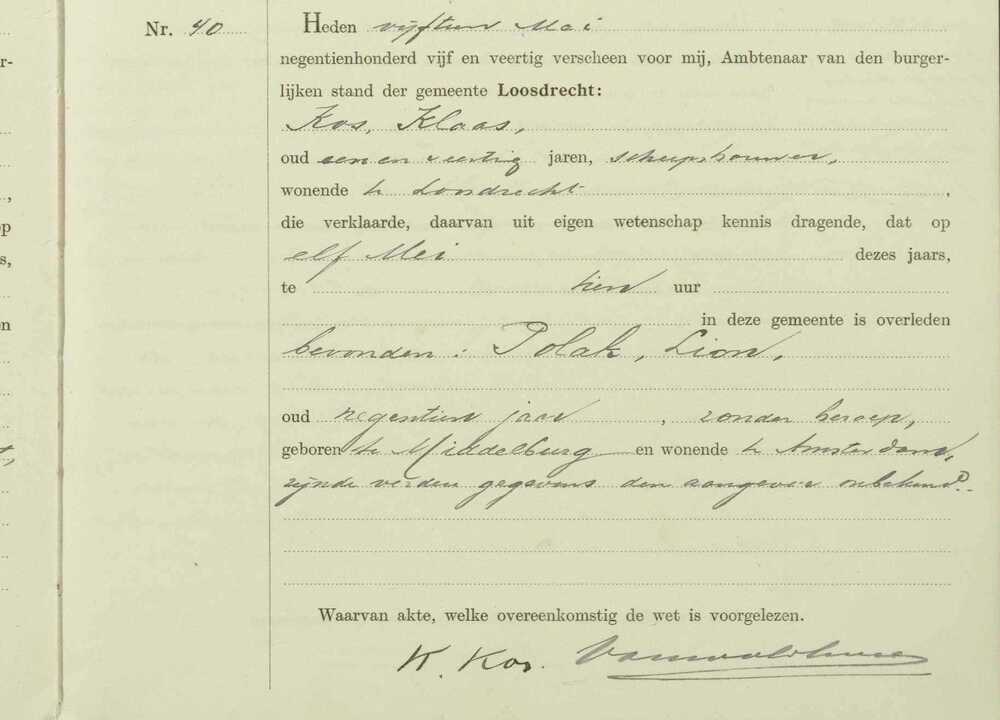 r-
,
op
s,
en
t,
Nr. 40
Heden vijftien Mei
negentienhonderd vijf en veertig verscheen voor mij, Ambtenaar van den burger-
lijken stand der gemeente Loosdrecht:
Kos, Klaas,
oud een en veertig jaren, scheepsbouwer,
wonende te Loosdrecht,
die verklaarde, daarvan uit eigen wetenschap kennis dragende, dat op
elf Mei dezes jaars,
te tien uur
in deze gemeente is overleden
bevonden: Polak, Lion,
oud negentien jaar, zonder beroep,
geboren te Middelburg en wonende te Amsterdam,
zijnde verdere gegevens den aangever onbekend.
Waarvan akte, welke overeenkomstig de wet is voorgelezen.
K. Kos.